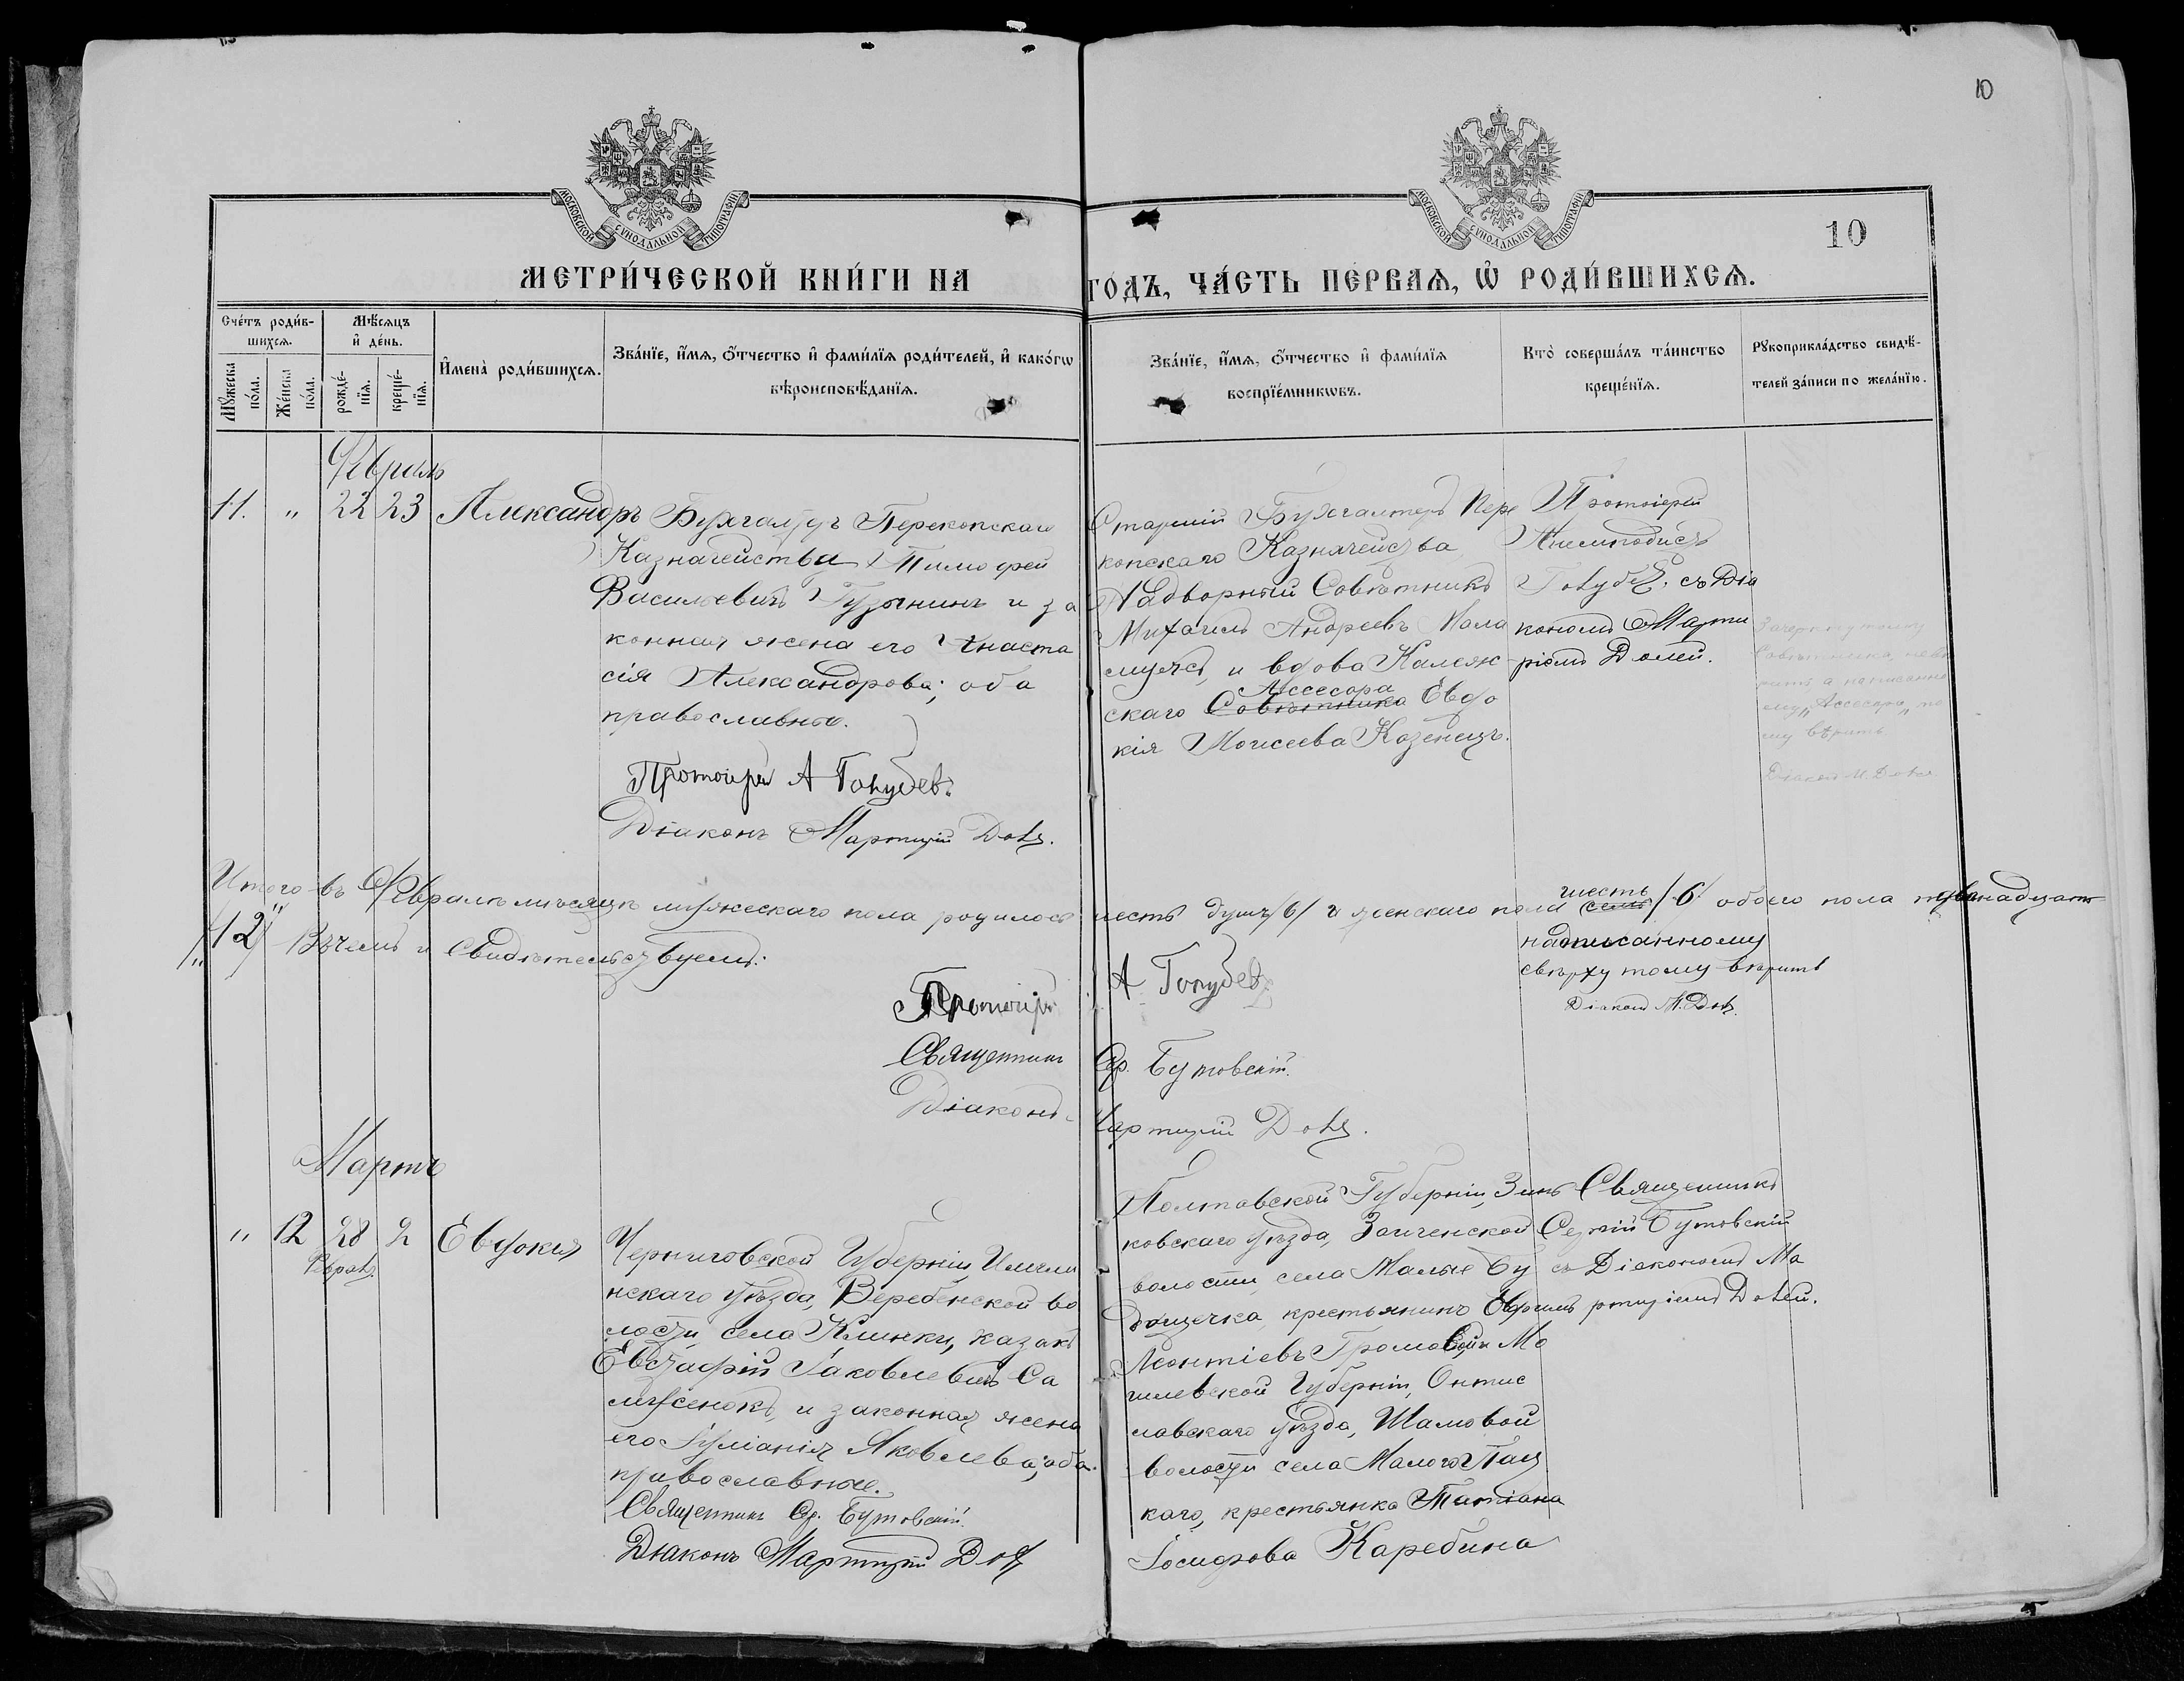 10
МОСКОВСКОЙ СѴНОДАЛЬНОЙ ТИПОГРАФІИ
МОСКОВСКОЙ СѴНОДАЛЬНОЙ ТИПОГРАФІИ
10
МЕТРИ́ЧЕСКОЙ КНИ́ГИ НА
ГОДЪ, ЧА́СТЬ ПЕ́РВАѦ, Ѡ҆ РОДИ́ВШИХСѦ.
Сче́тъ роди́в-
шихсѧ.
Мꙋ́жеска по́ла.
Же́нска по́ла.
Мѣ́сѧцъ
и҆ де́нь.
рожде́-
нїѧ.
креще́-
нїѧ.
И҆мена̀ роди́вшихсѧ.
Зва́нїе, и҆́мѧ, ѻ҆́тчество и҆ фами́лїѧ роди́телей, и҆ како́гѡ
вѣроисповѣ́данїѧ.
Зва́нїе, и҆́мѧ, ѻ҆́тчество и҆ фами́лїѧ
воспрїе́мникѡвъ.
Кто̀ соверша́лъ та́инство
креще́нїѧ.
Рꙋкоприкла́дство свидѣ́-
телей за́писи по жела́нїю.
Февраль
11. " 22 23 Александръ
Бухгалтеръ Перекопскаго
Казначейства Тимофей
Васильевичъ Гузынинъ и за
конная жена его Анаста
сія Александрова; оба
православные.
Протоіерей А Голубевъ
Діаконъ Мартирій Доля.
Старшій Бухгалтеръ Пере
копскаго Казначейства
Надворный Совѣтникъ
Михаилъ Андреевъ Мала
и вдова Калеж
Ассесора
скаго Совѣтника Евдо
кія Моисеева Козенецъ.
Протоіерей
Анемподистъ
Голубевъ съ Діа
кономъ Марти
ріемъ Долей.
Зачеркнутому
Совѣтника, невѣ
рить, а написанно
му „Ассесора„ по
му вѣрить
Діаконъ М. Доля.
Итого въ Февралѣ мѣсяцѣ мужескаго пола родилось шесть душъ /6/ и женскаго пола шесть семь /6/ обоего пола двѣнадцать
/„12„/ Въ чемъ и свидѣтельствуемъ:
надписанному
сверху тому вѣрить
Діаконъ М. Доля.
Протоіерей А Голубевъ
Священникъ Ср. Бутовскій.
Діаконъ Мартирій Доля.
Мартъ
" 12 28 2 Евдокія
Февраля
Черниговской Губерніи,
нскаго уѣзда, Веребенской во
лости села Клинки, казакъ
Евстафій Іаковлевичъ Са
мусенокъ, и законная жена
его Іуліанія Яковлева; оба
православные.
Священникъ Ср. Бутовскій.
Діаконъ Мартирій Доля
Полтавской Губерніи, Зинь
ковскаго уѣзда, Заиченской
волости, села Малые Бу
дищечка, крестьянинъ Ефимъ
Леонтіевъ Громовой и Мо
гилевской Губерніи, Омтис
лавскаго уѣзда, Шамовой
волости села Малого
каго, крестьянка Татіана
Іосифова Каребина
Священникъ
Сергій Бутовскій
съ Діакономъ Ма
ртиріемъ Долей.